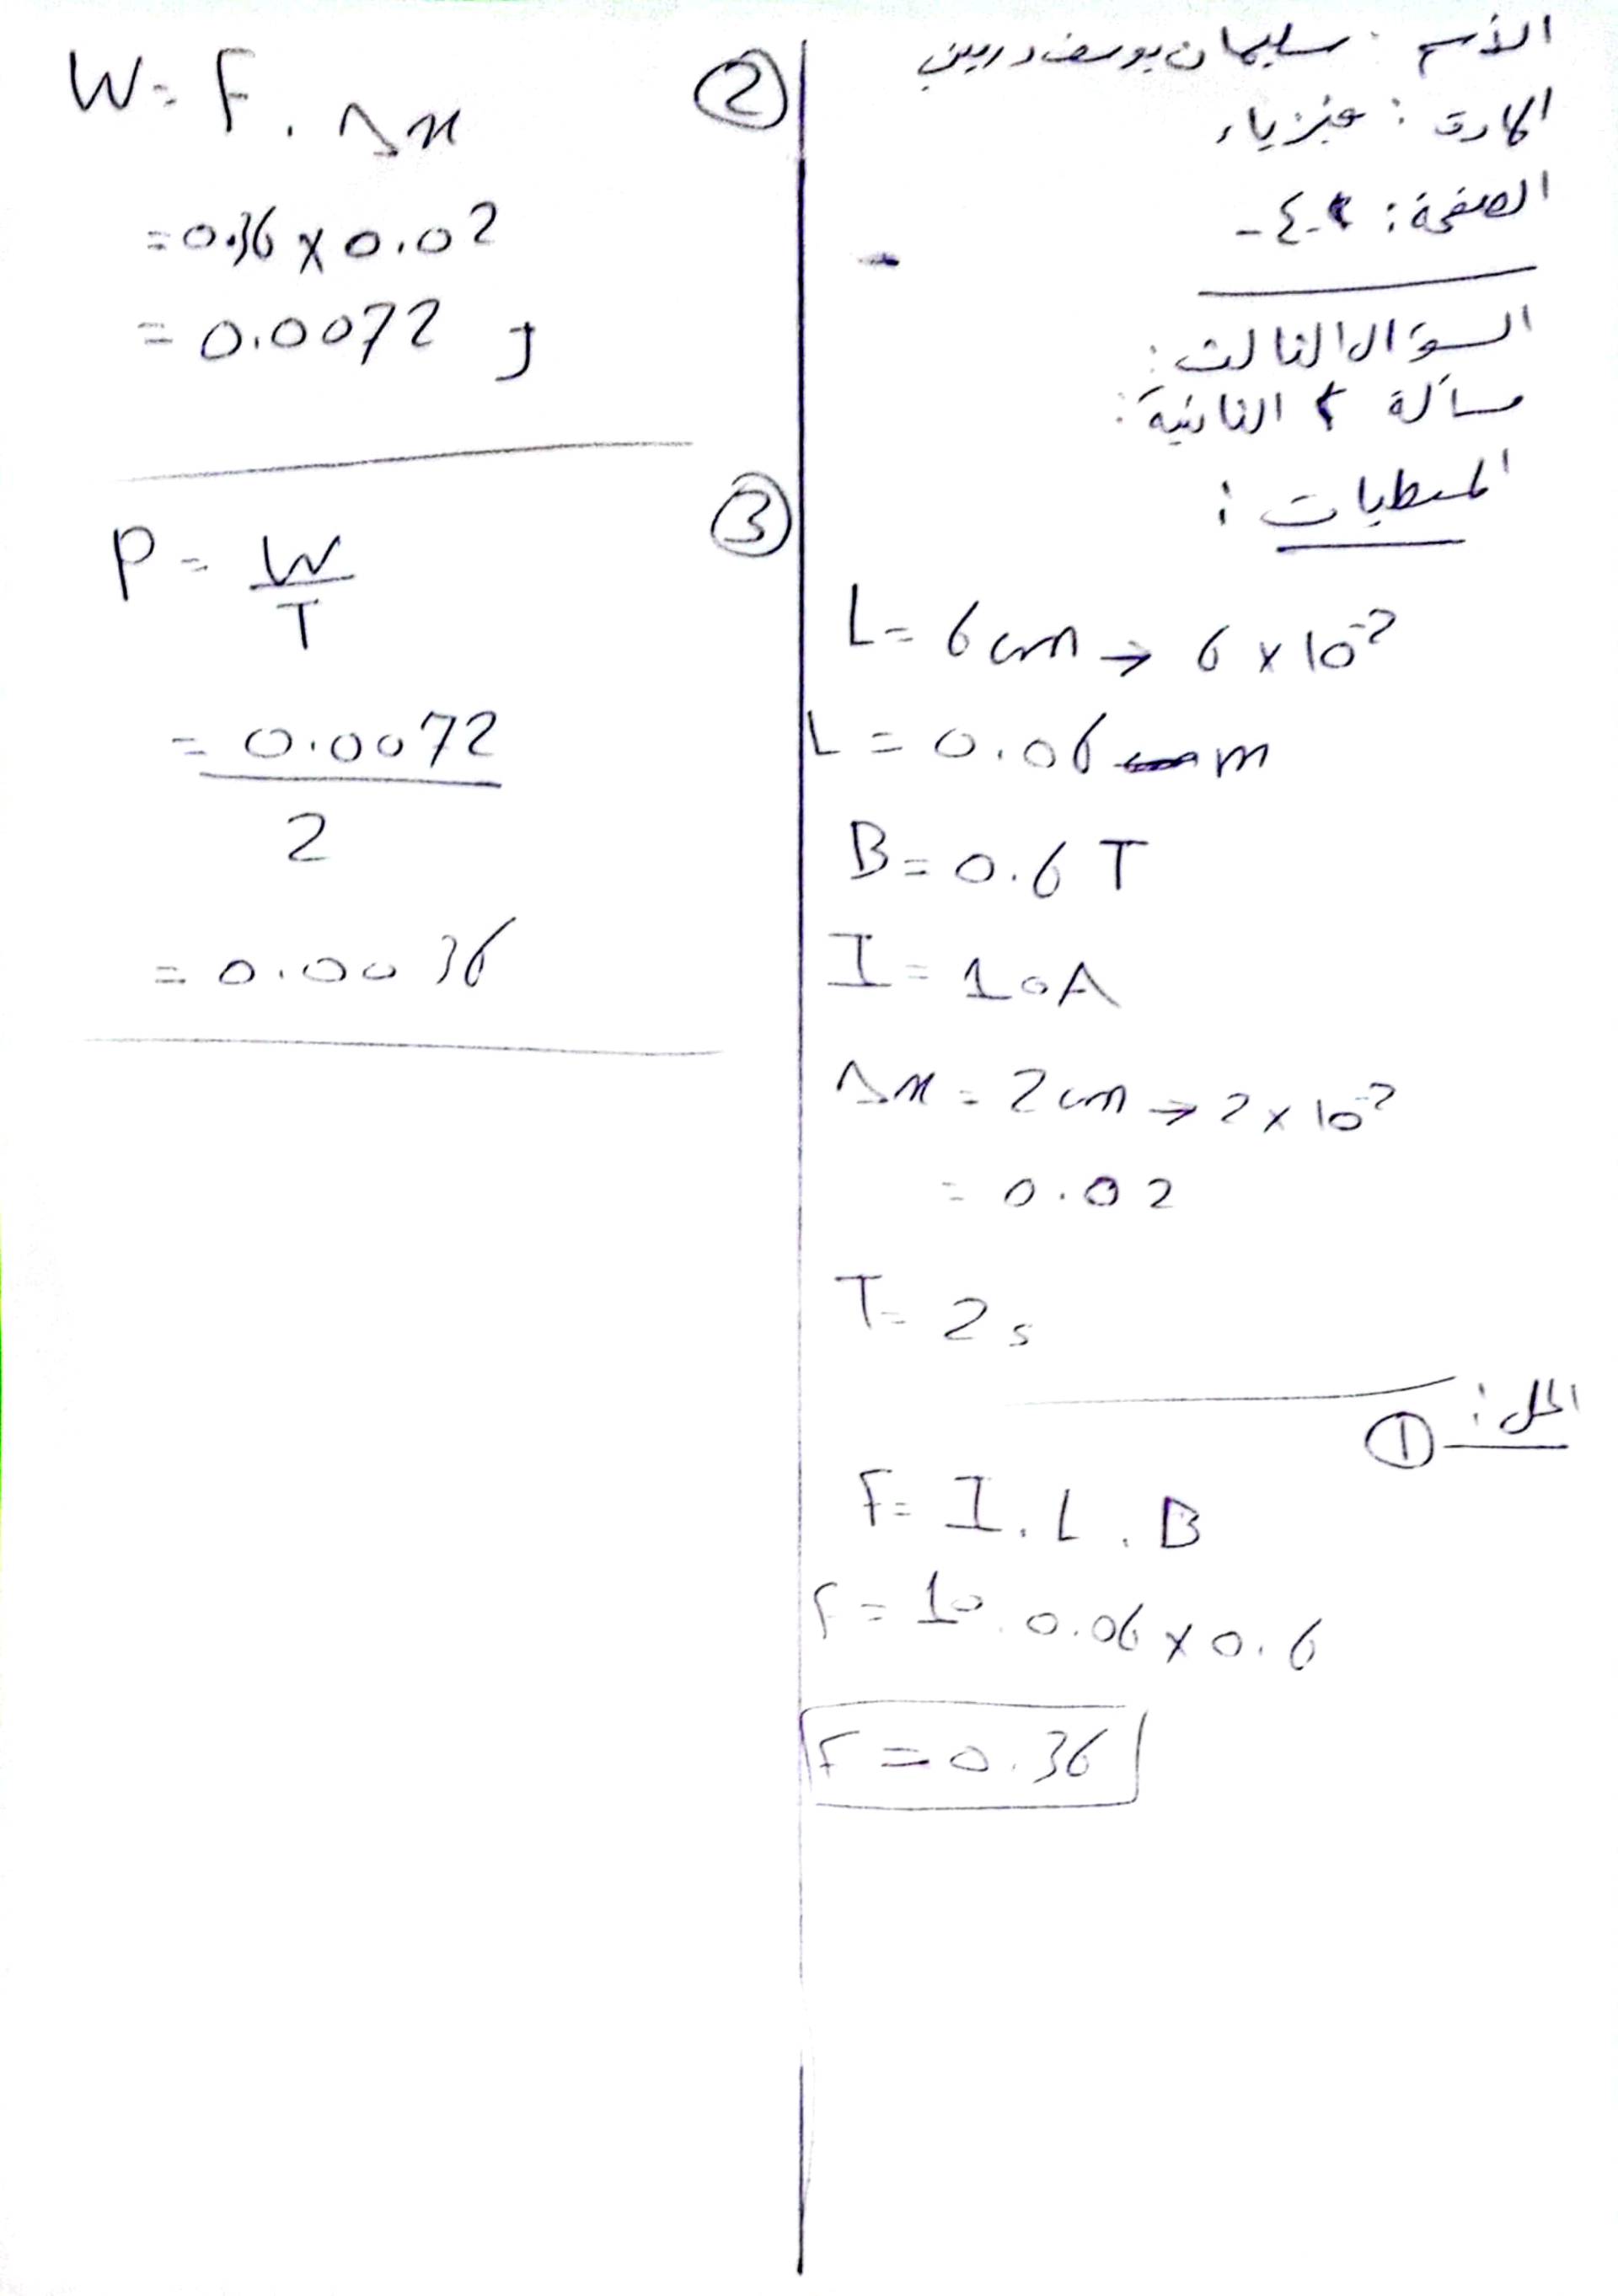 الأسم : سليمان يوسف دربين
المادة : فيزياء
الصفحة : -٤-
السؤال الثالث :
مسألة الثانية :
المعطيات :
L = 6 cm → 6 × 10⁻²
L = 0.06 m
B = 0.6 T
I = 10 A
Δx = 2 cm → 2 × 10⁻²
= 0.02
T = 2 s
الحل : ①
F = I . L . B
F = 10 . 0.06 × 0.6
F = 0.36
②
W = F . Δx
= 0.36 × 0.02
= 0.0072 J
③
P = W
T
= 0.0072
2
= 0.0036